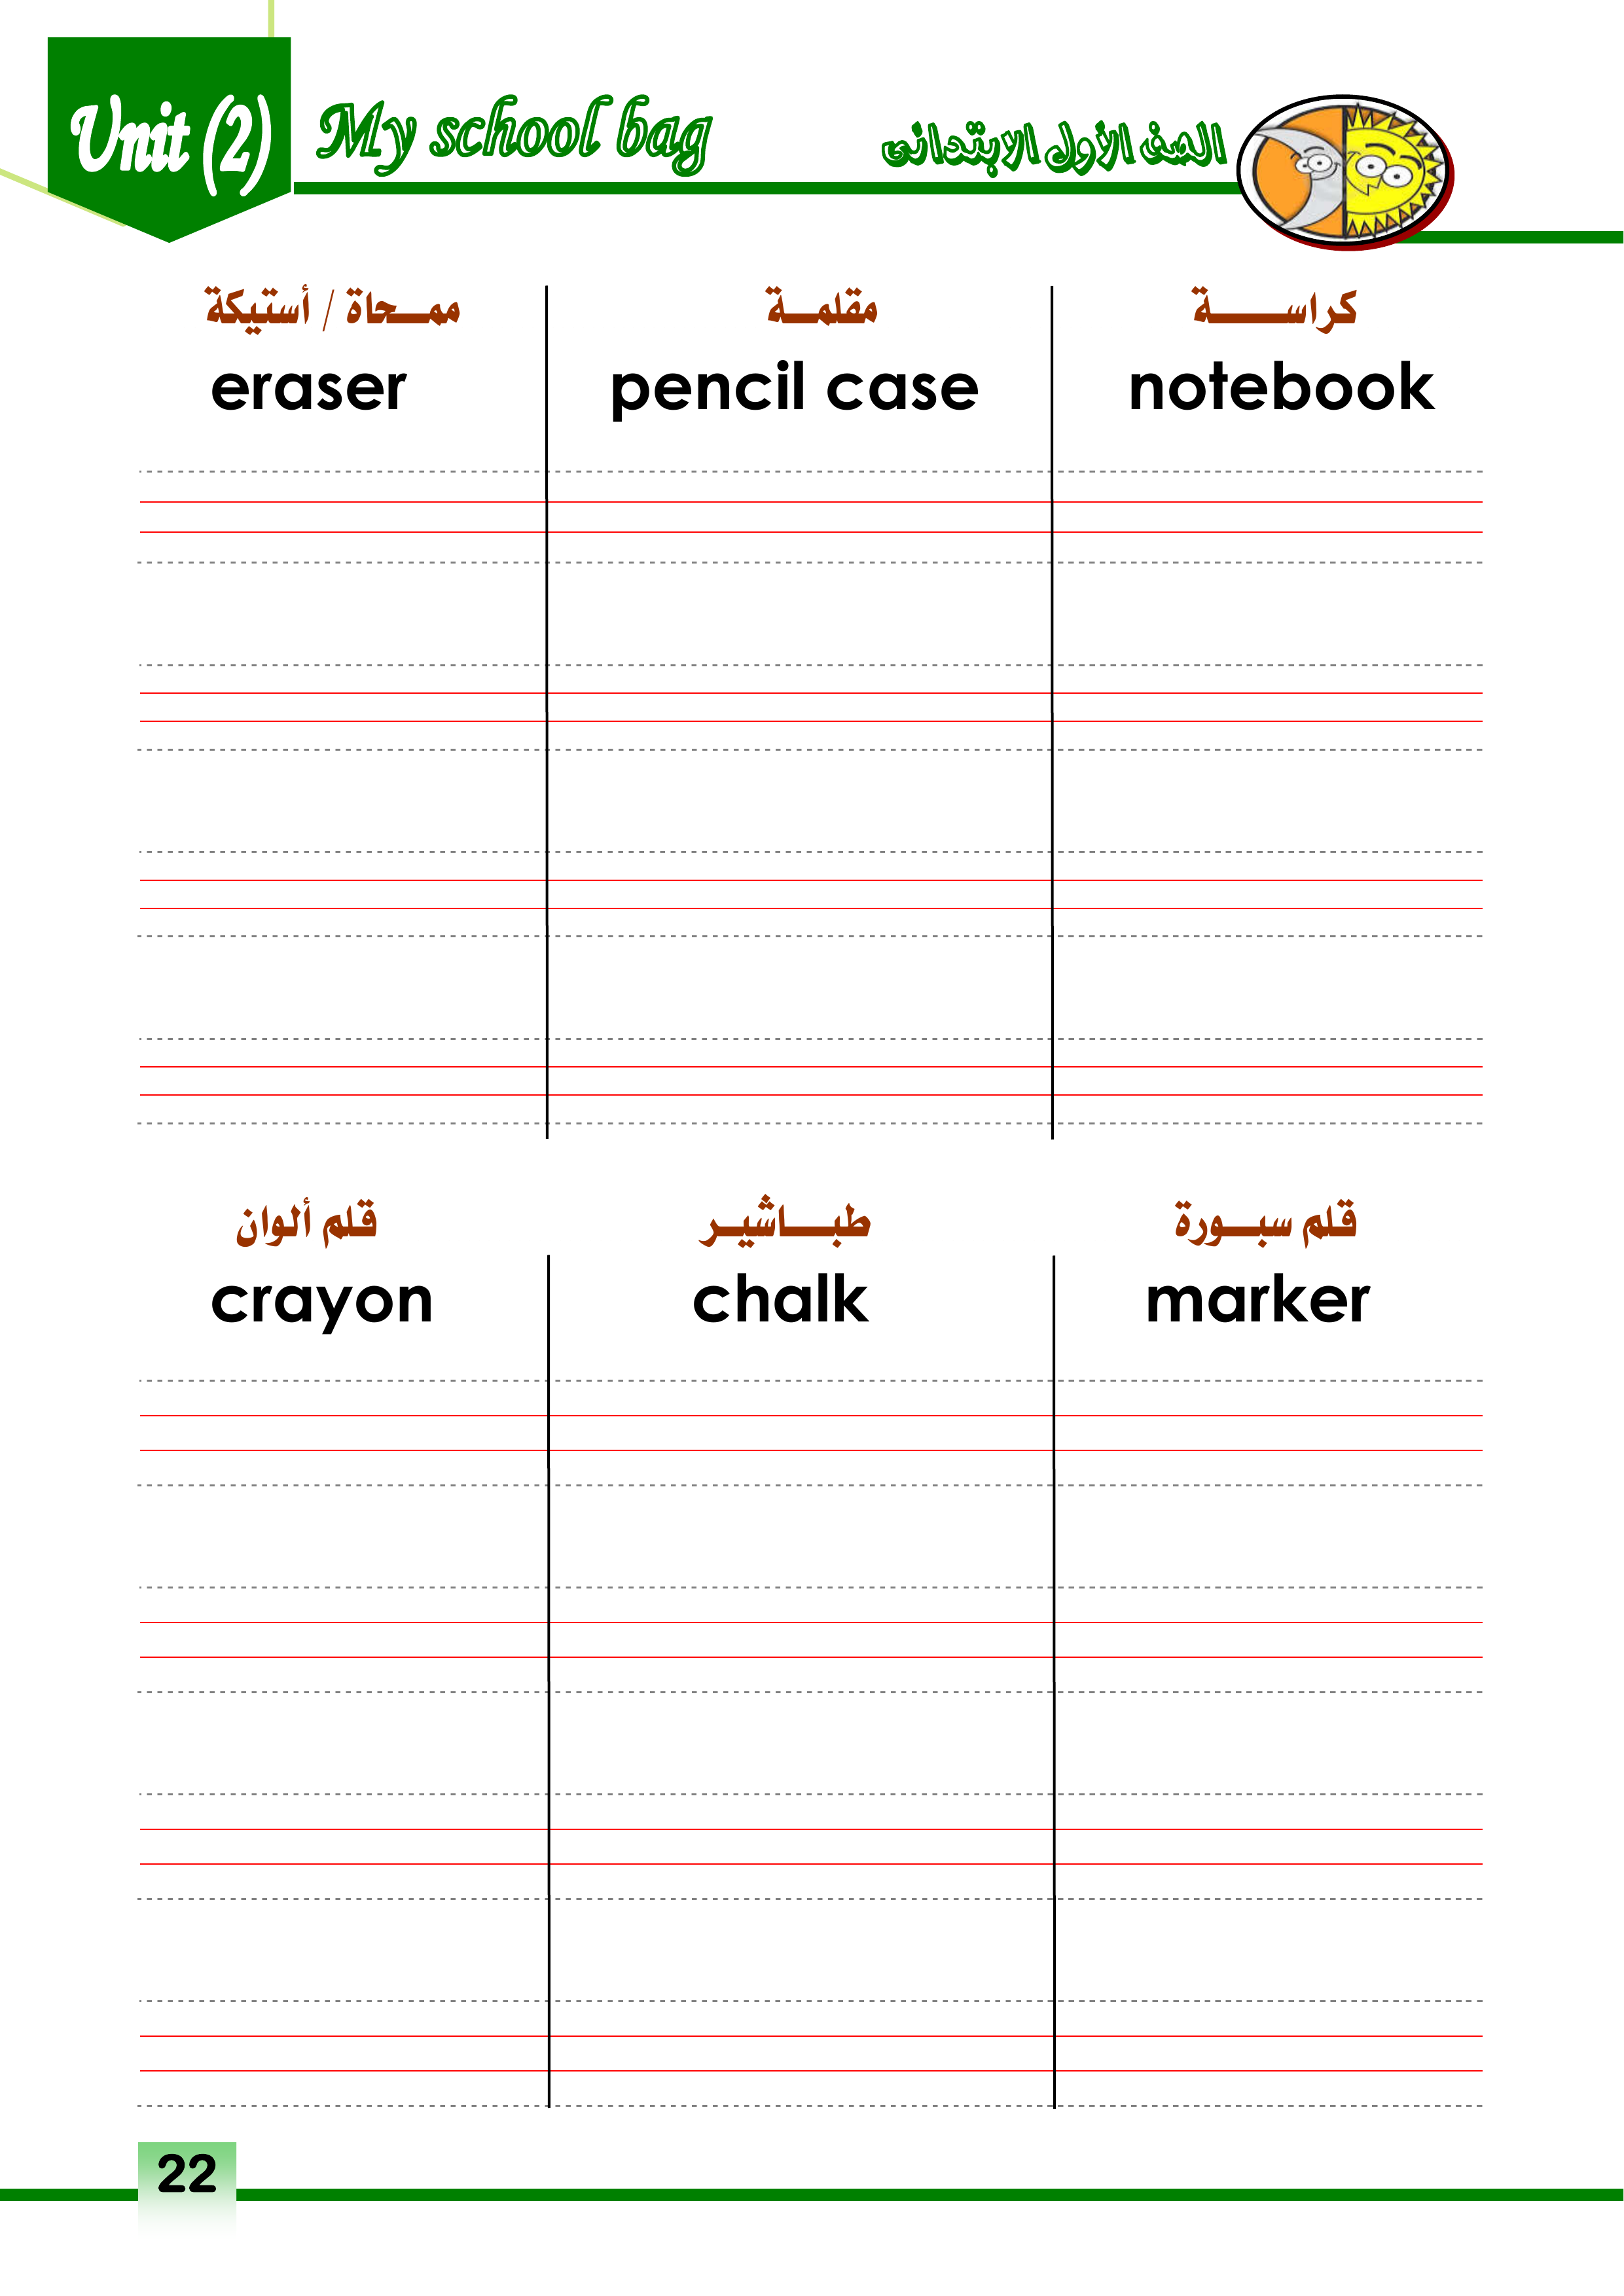 Unit (2)
My school bag
الصف الأول الابتدائى
ممحاة / أستيكة
مقلمة
كراسة
eraser
pencil case
notebook
قلم ألوان
طباشير
قلم سبورة
crayon
chalk
marker
22